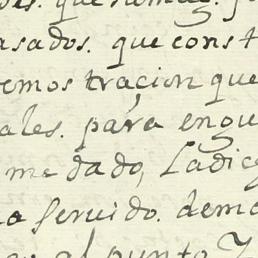 que
asados. que const
emos tracion que
ales. para engu
me dado, Ladic
a servido. demo
al punto